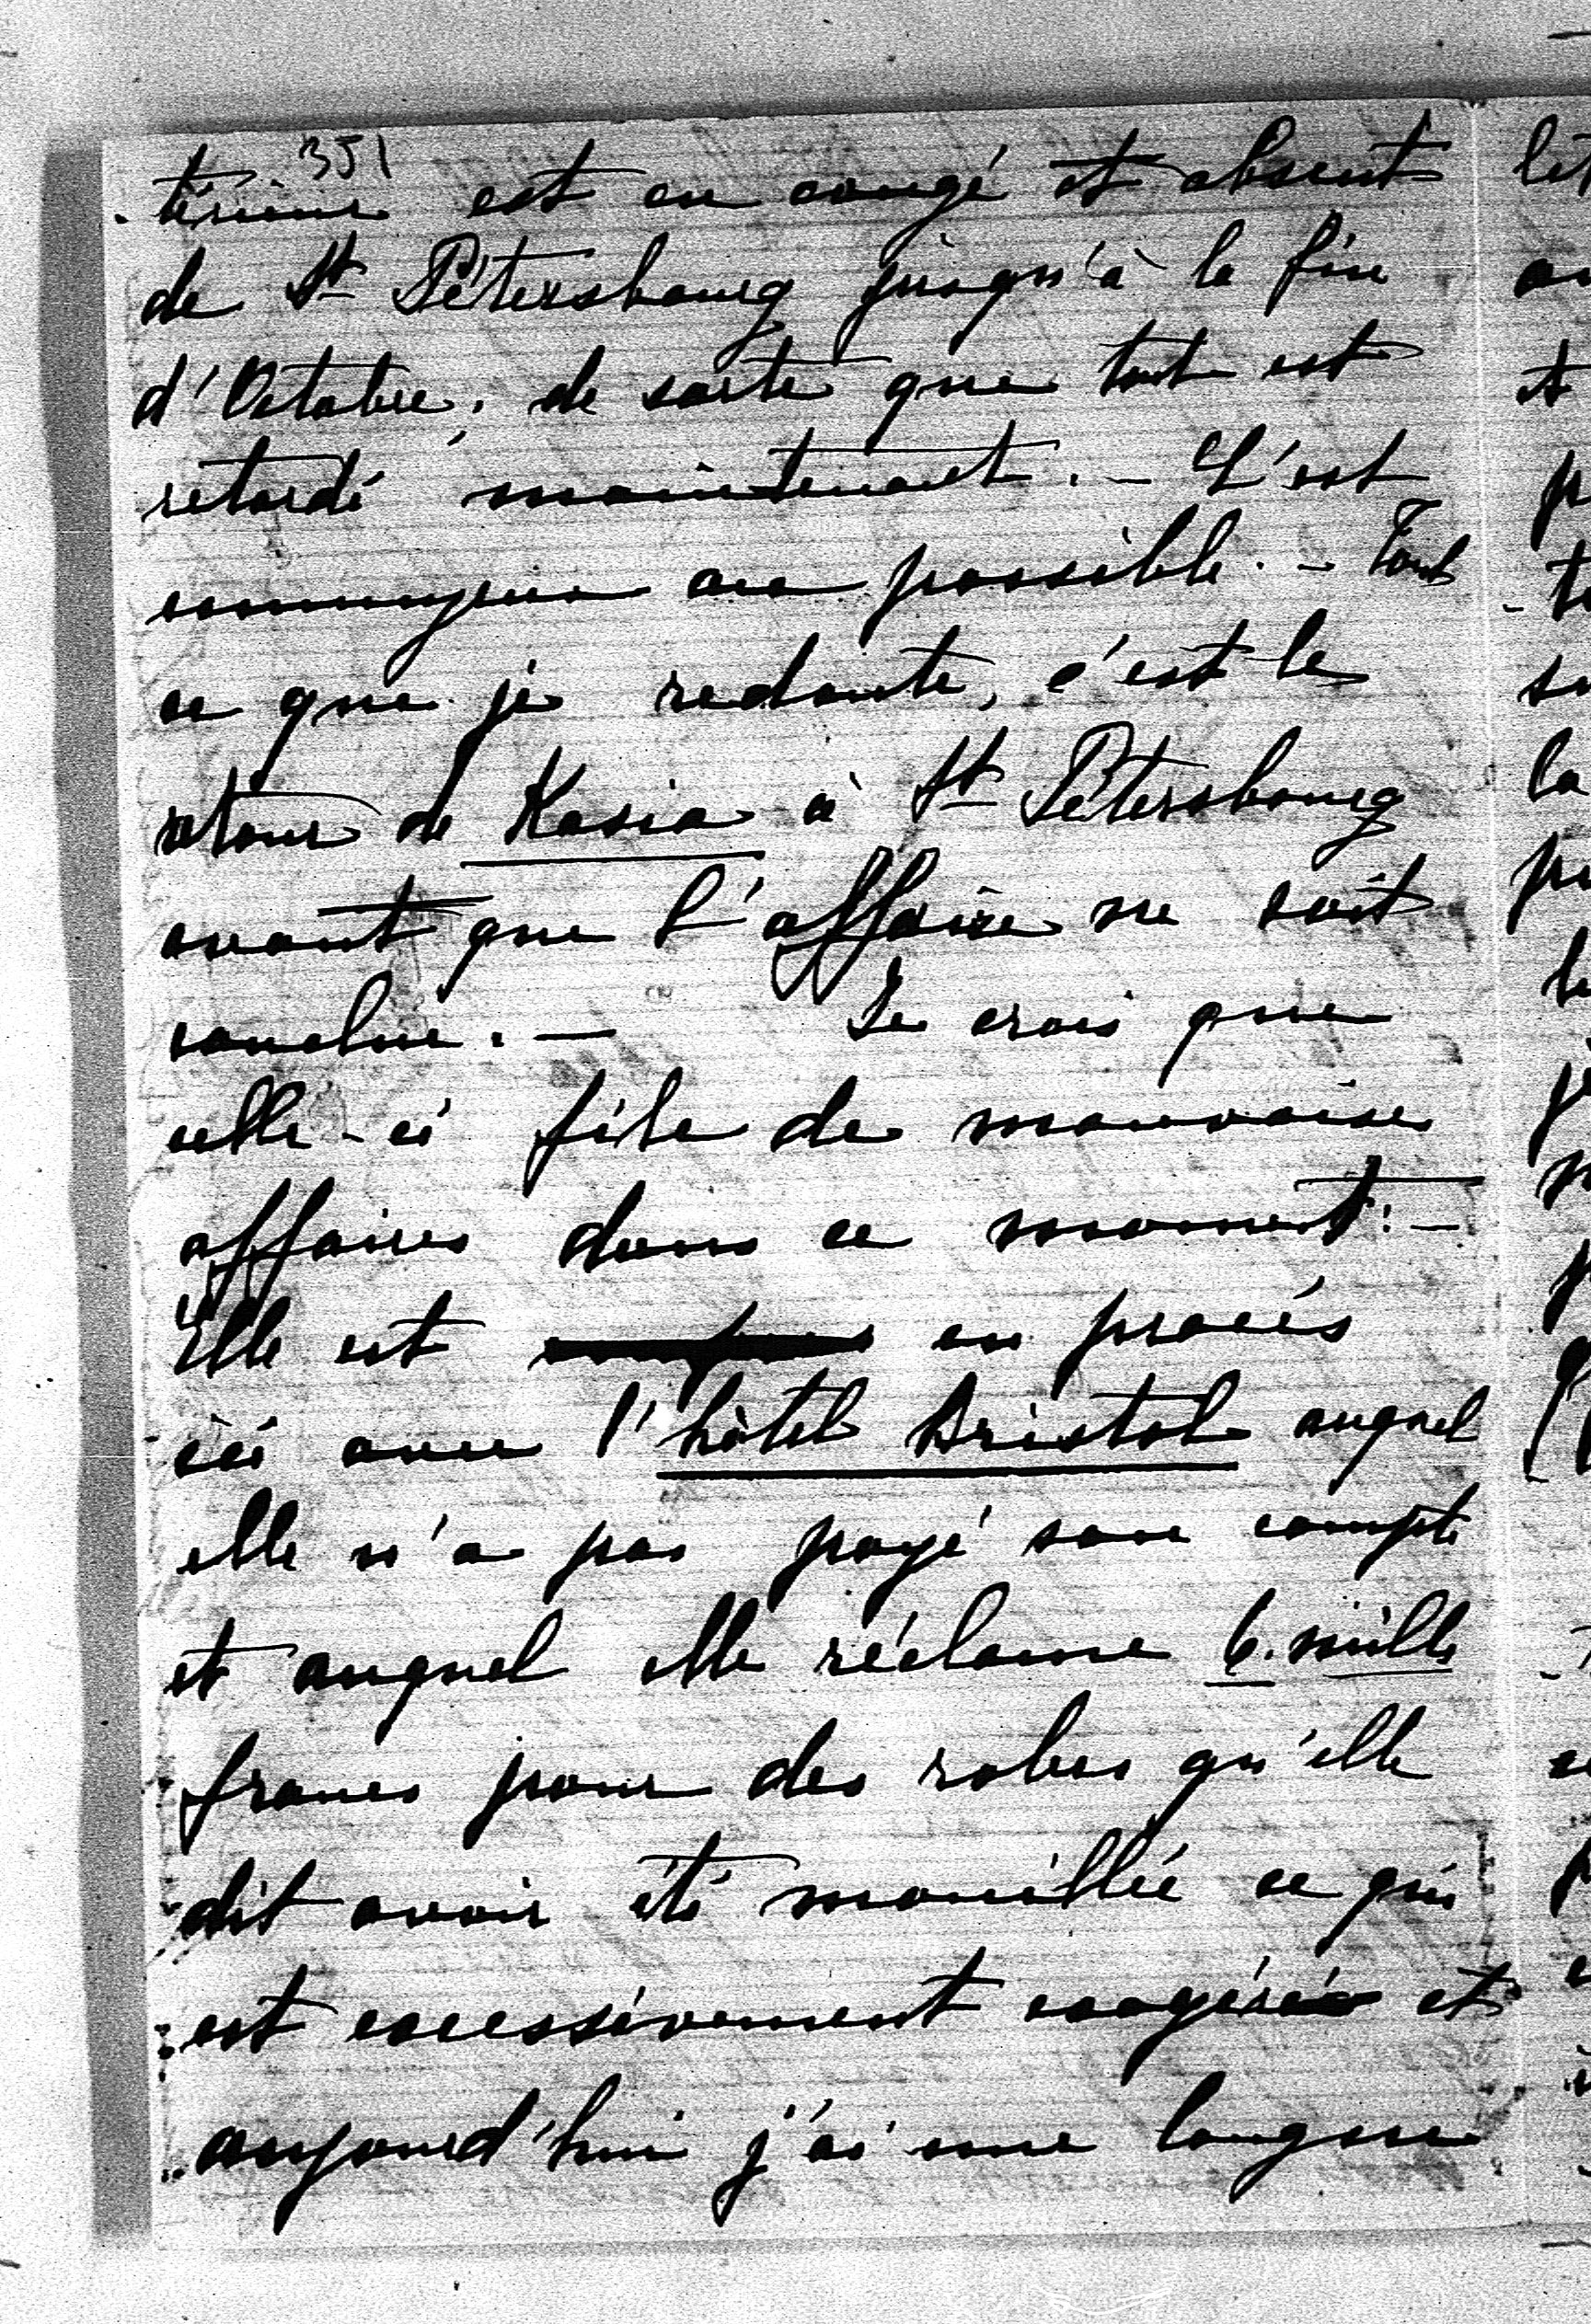 351
-térieur est en congé et absent
de St Pétersbourg jusqu'à la fin
d'Octobre, de sorte que tout est
retardé maintenant. - C'est
ennuyeux au possible. - Tout
ce que je redoute, c'est le
retour de Kasia à St Pétersbourg
avant que l'affaire ne soit
conclue. - Je crois que
celle-ci file de mauvaises
affaires dans ce moment: -
Elle est en procès
ici avec l'hôtel Bristol auquel
elle n'a pas payé son compte
et auquel elle réclame 6. mille
francs pour des robes qu'elle
dit avoir été mouillée ce qui
est excessivement exagéré et
aujourd'hui j'ai une longue